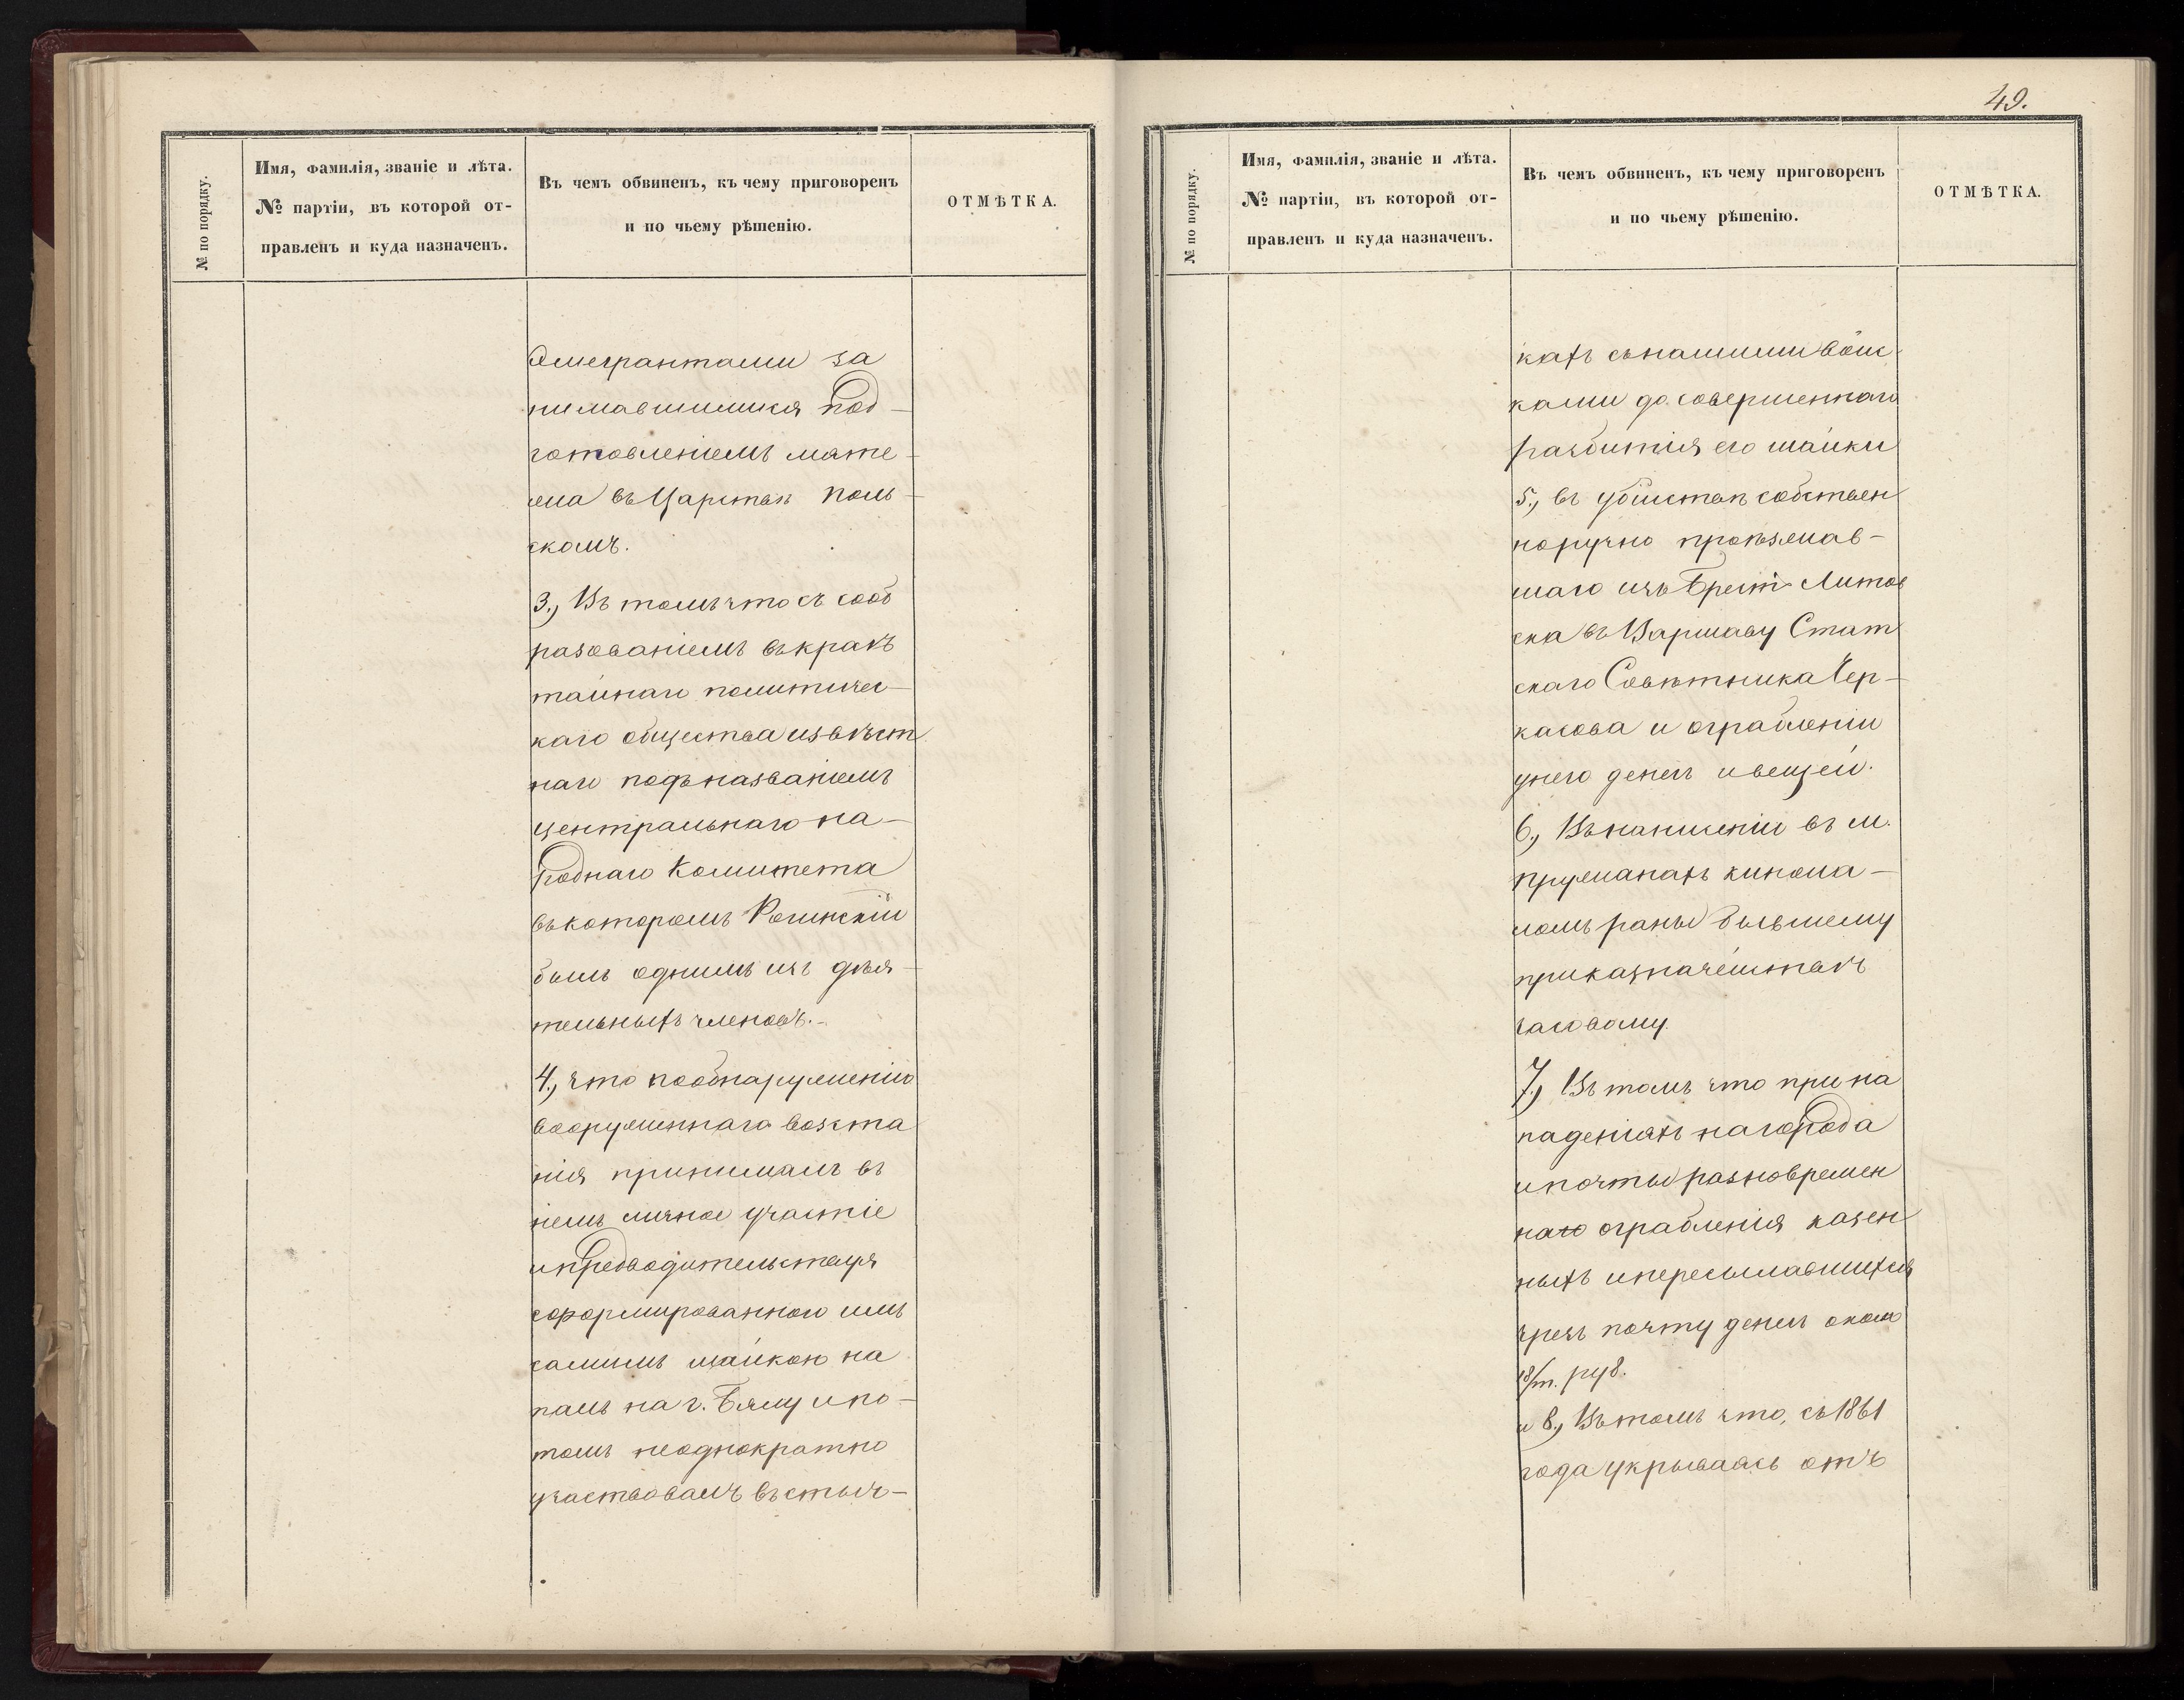 49.
№ по порядку.
Имя, фамилія, званіе и лѣта.
№ партіи, въ которой от-
правленъ и куда назначенъ.
Въ чемъ обвиненъ, къ чему приговоренъ
и по чьему рѣшенію.
ОТМѢТКА.
эмегрантами за
нимавшимися под-
готовленіемъ мяте-
жа въ Царствѣ Поль-
скомъ.
3., Въ томъ что съ сооб
разованіемъ въ краѣ
тайнаго политичес-
каго общества извѣст
наго подъ названіемъ
центральнаго на-
роднаго Комитета
въ которомъ Рогинскій
былъ однимъ изъ дѣя-
тельныхъ членовъ.-
4., что по обнаруженію
вооруженнаго возста
нія принималъ въ
немъ личное участіе
и предводительствуя
сформированною имъ
самимъ шайкою на
палъ на г. Бялу и по-
томъ неоднократно
участвовалъ въ стыч-
№ по порядку.
Имя, фамилія, званіе и лѣта.
№ партіи, въ которой от-
правленъ и куда назначенъ.
Въ чемъ обвиненъ, къ чему приговоренъ
и по чьему рѣшенію.
ОТМѢТКА.
кахъ съ нашими войс-
ками до совершеннаго
разбитія его шайки
5., въ убійствѣ собствен
норучно проѣзжав-
шаго изъ Брестъ Литов
ска въ Варшаву Стат
скаго Совѣтника Чер-
касова и ограбленіи
у него денегъ и вещей.
6., Въ нанесеніи въ м.
Пружанахъ кинжа-
ломъ раны бывшему
при казначействѣ
часовому.
7., Въ томъ что при на
паденіяхъ на города
и почты разновремен
наго ограбленія казен
ныхъ и пересылавшихся
чрезъ почту денегъ около
18/т. руб.
и 8., Въ томъ что, съ 1861
года укрываясь отъ